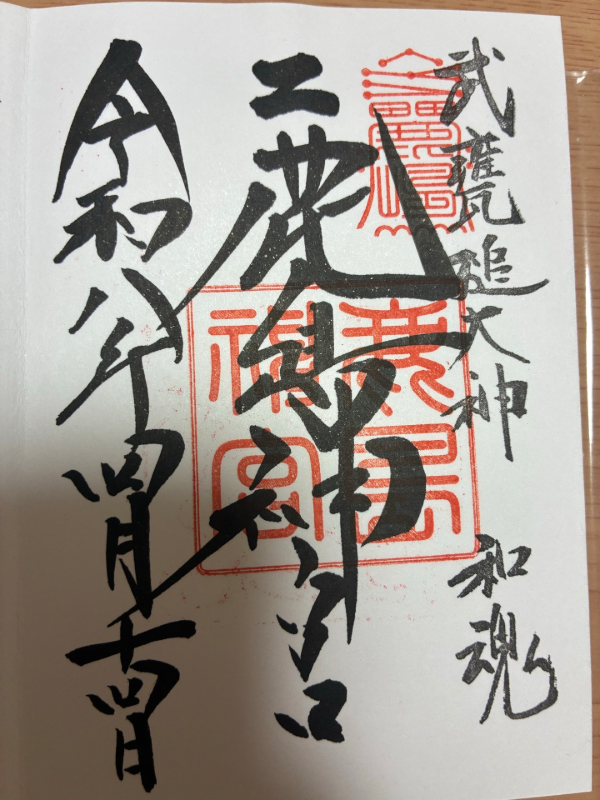 武甕槌大神 和魂
鹿島神宮
鹿島
神宮
令和八年四月十四日